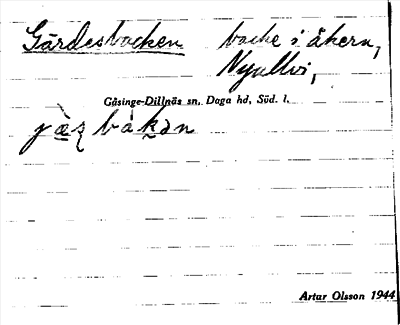 Gärdesbacken backe i åkern,
Nyallvi,
Gåsinge-Dillnäs sn. Daga hd, Söd. l.
Artur Olsson 1944